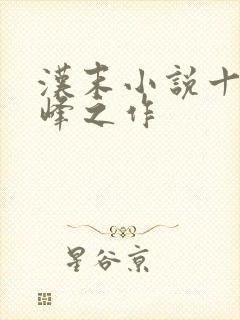 漢末小說十
峰之作
星谷京